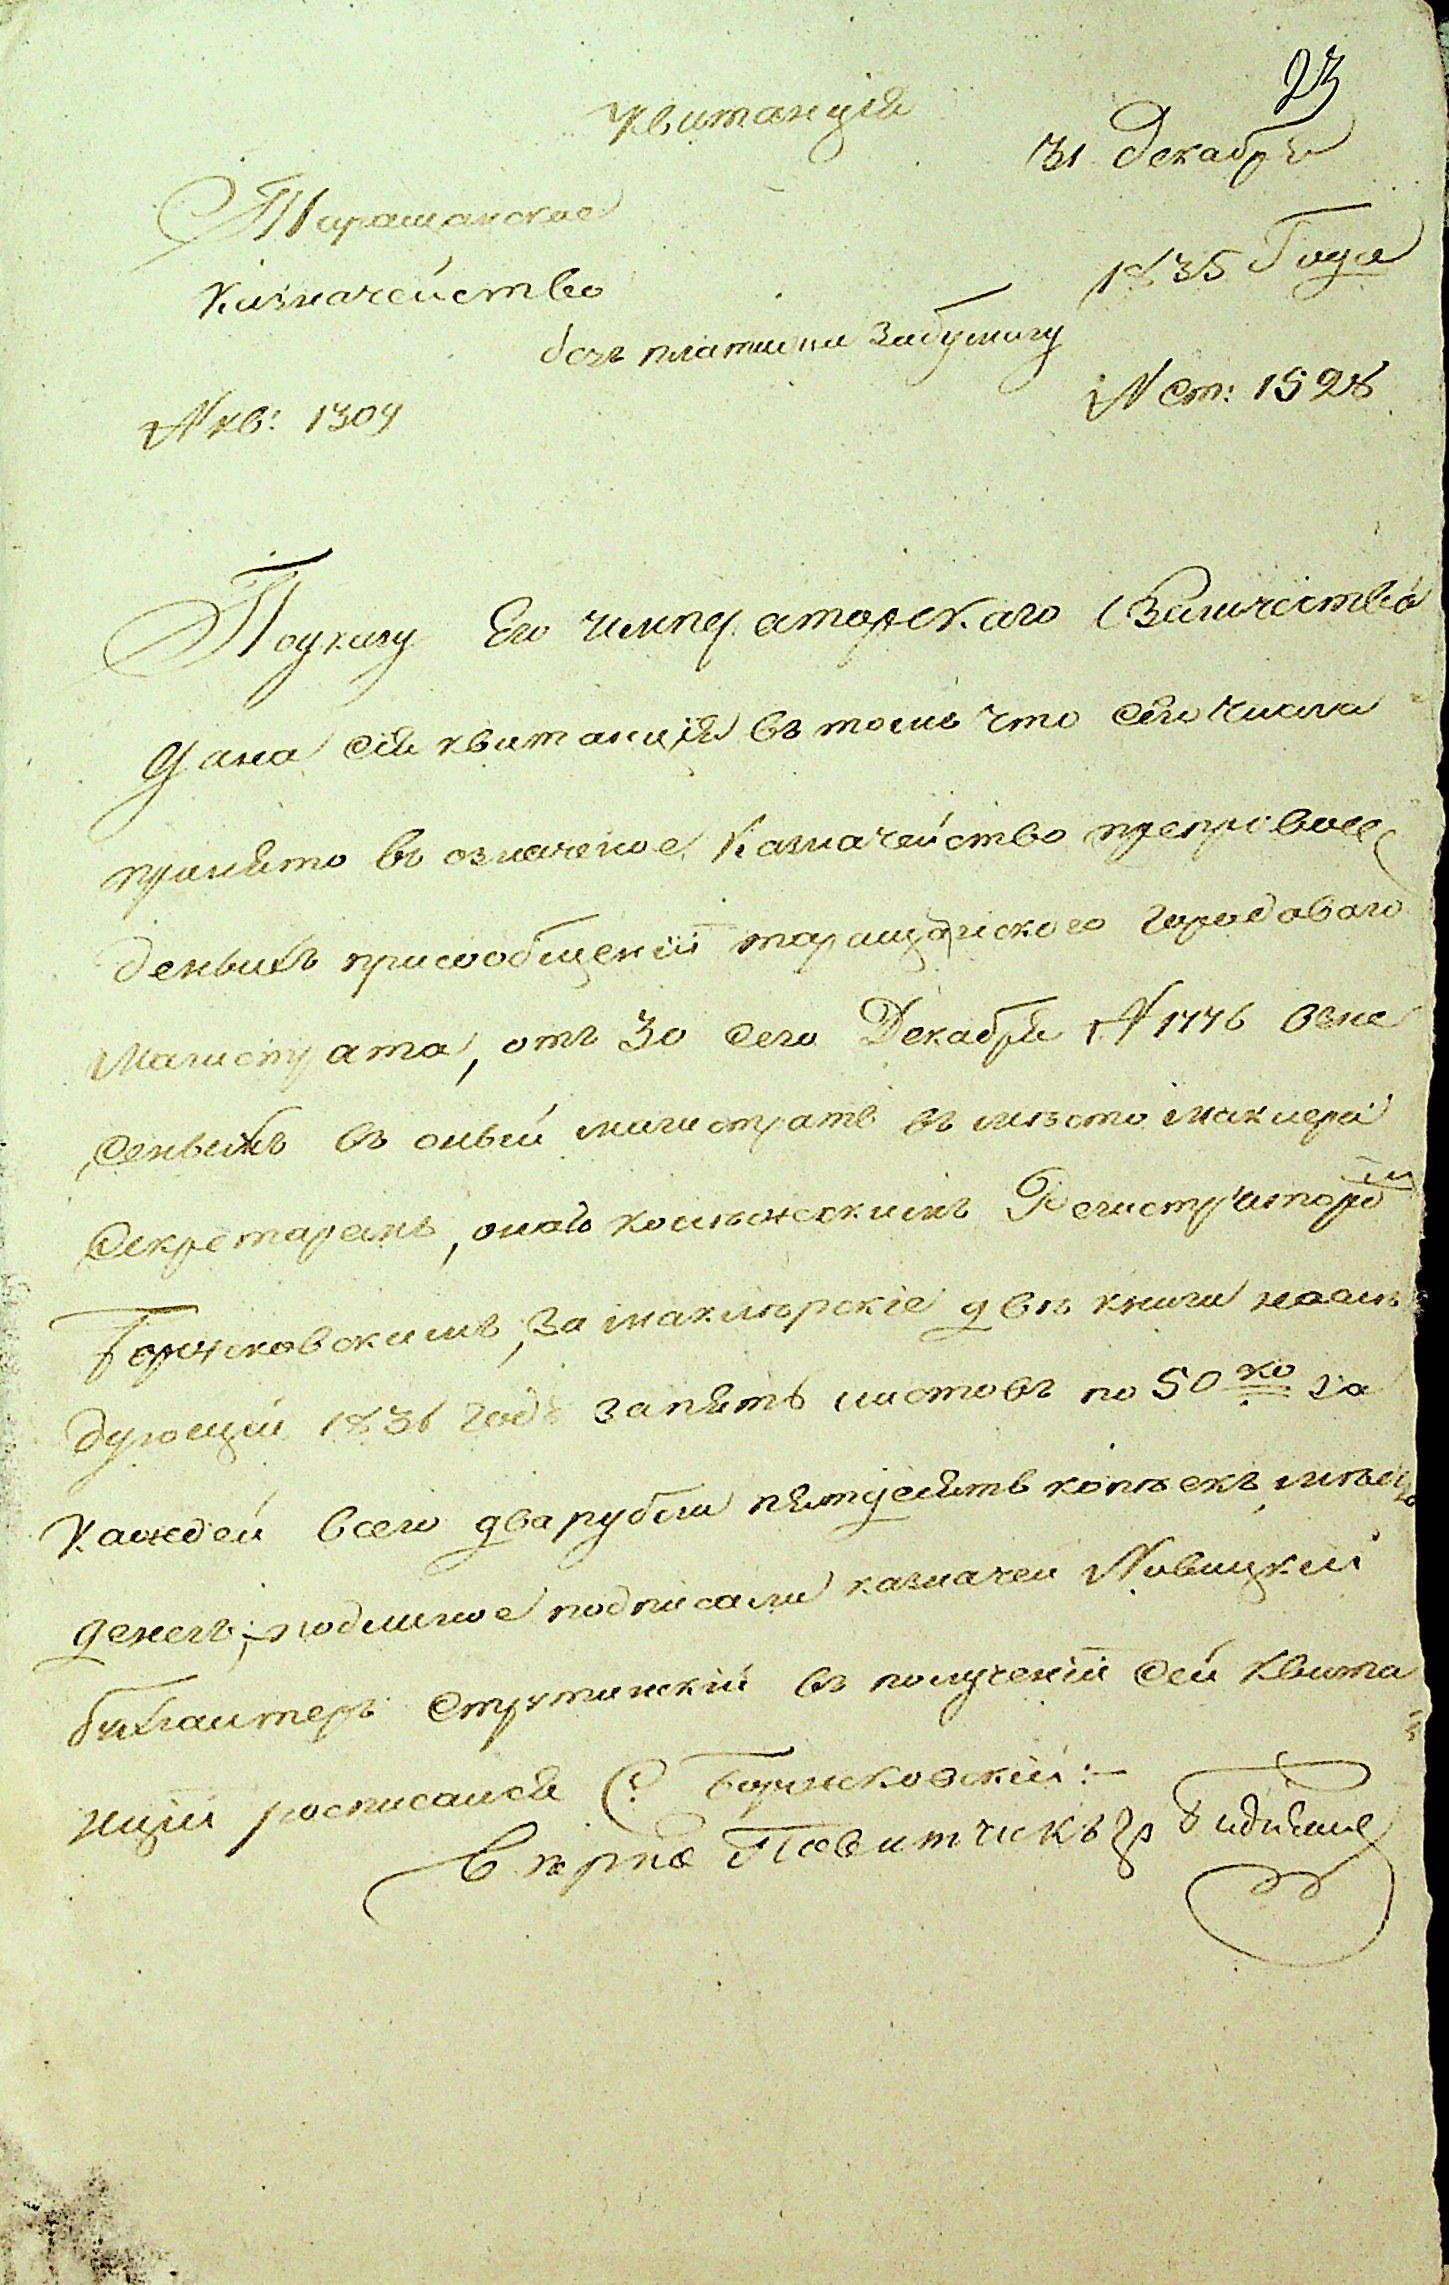 23
Квитанція
31 Декабря
Таращанское
1835 Года
Казначейство
безъ платы на забумагу
N ст: 1528
N кв: 1309
Поуказу Его Императорскаго Величества
дана сія квитанція въ томъ что сего числа
принято въ означеное Казначейство препровож
денныхъ присообщеніи таращанского городоваго
Магистрата, отъ 30 сего Декабря N 1776 взне
сеныхъ въ оный магистратъ въ место маклера
Секретаремъ, Регистраторомъ
Боржковскимъ, за маклерскіе две книги наслѣ
дующій 1836 годъ запять листовъ по 50 ко за
каждей всего два рубли пятдесятъ копѣекъ мѣдю
денегъ, подлиное подписали казначей Новицкій
бухгалтеръ Струтинскій въ полученіи сей квита
нціи росписался С. Боржковскій:
Вѣрно Повитчикъ